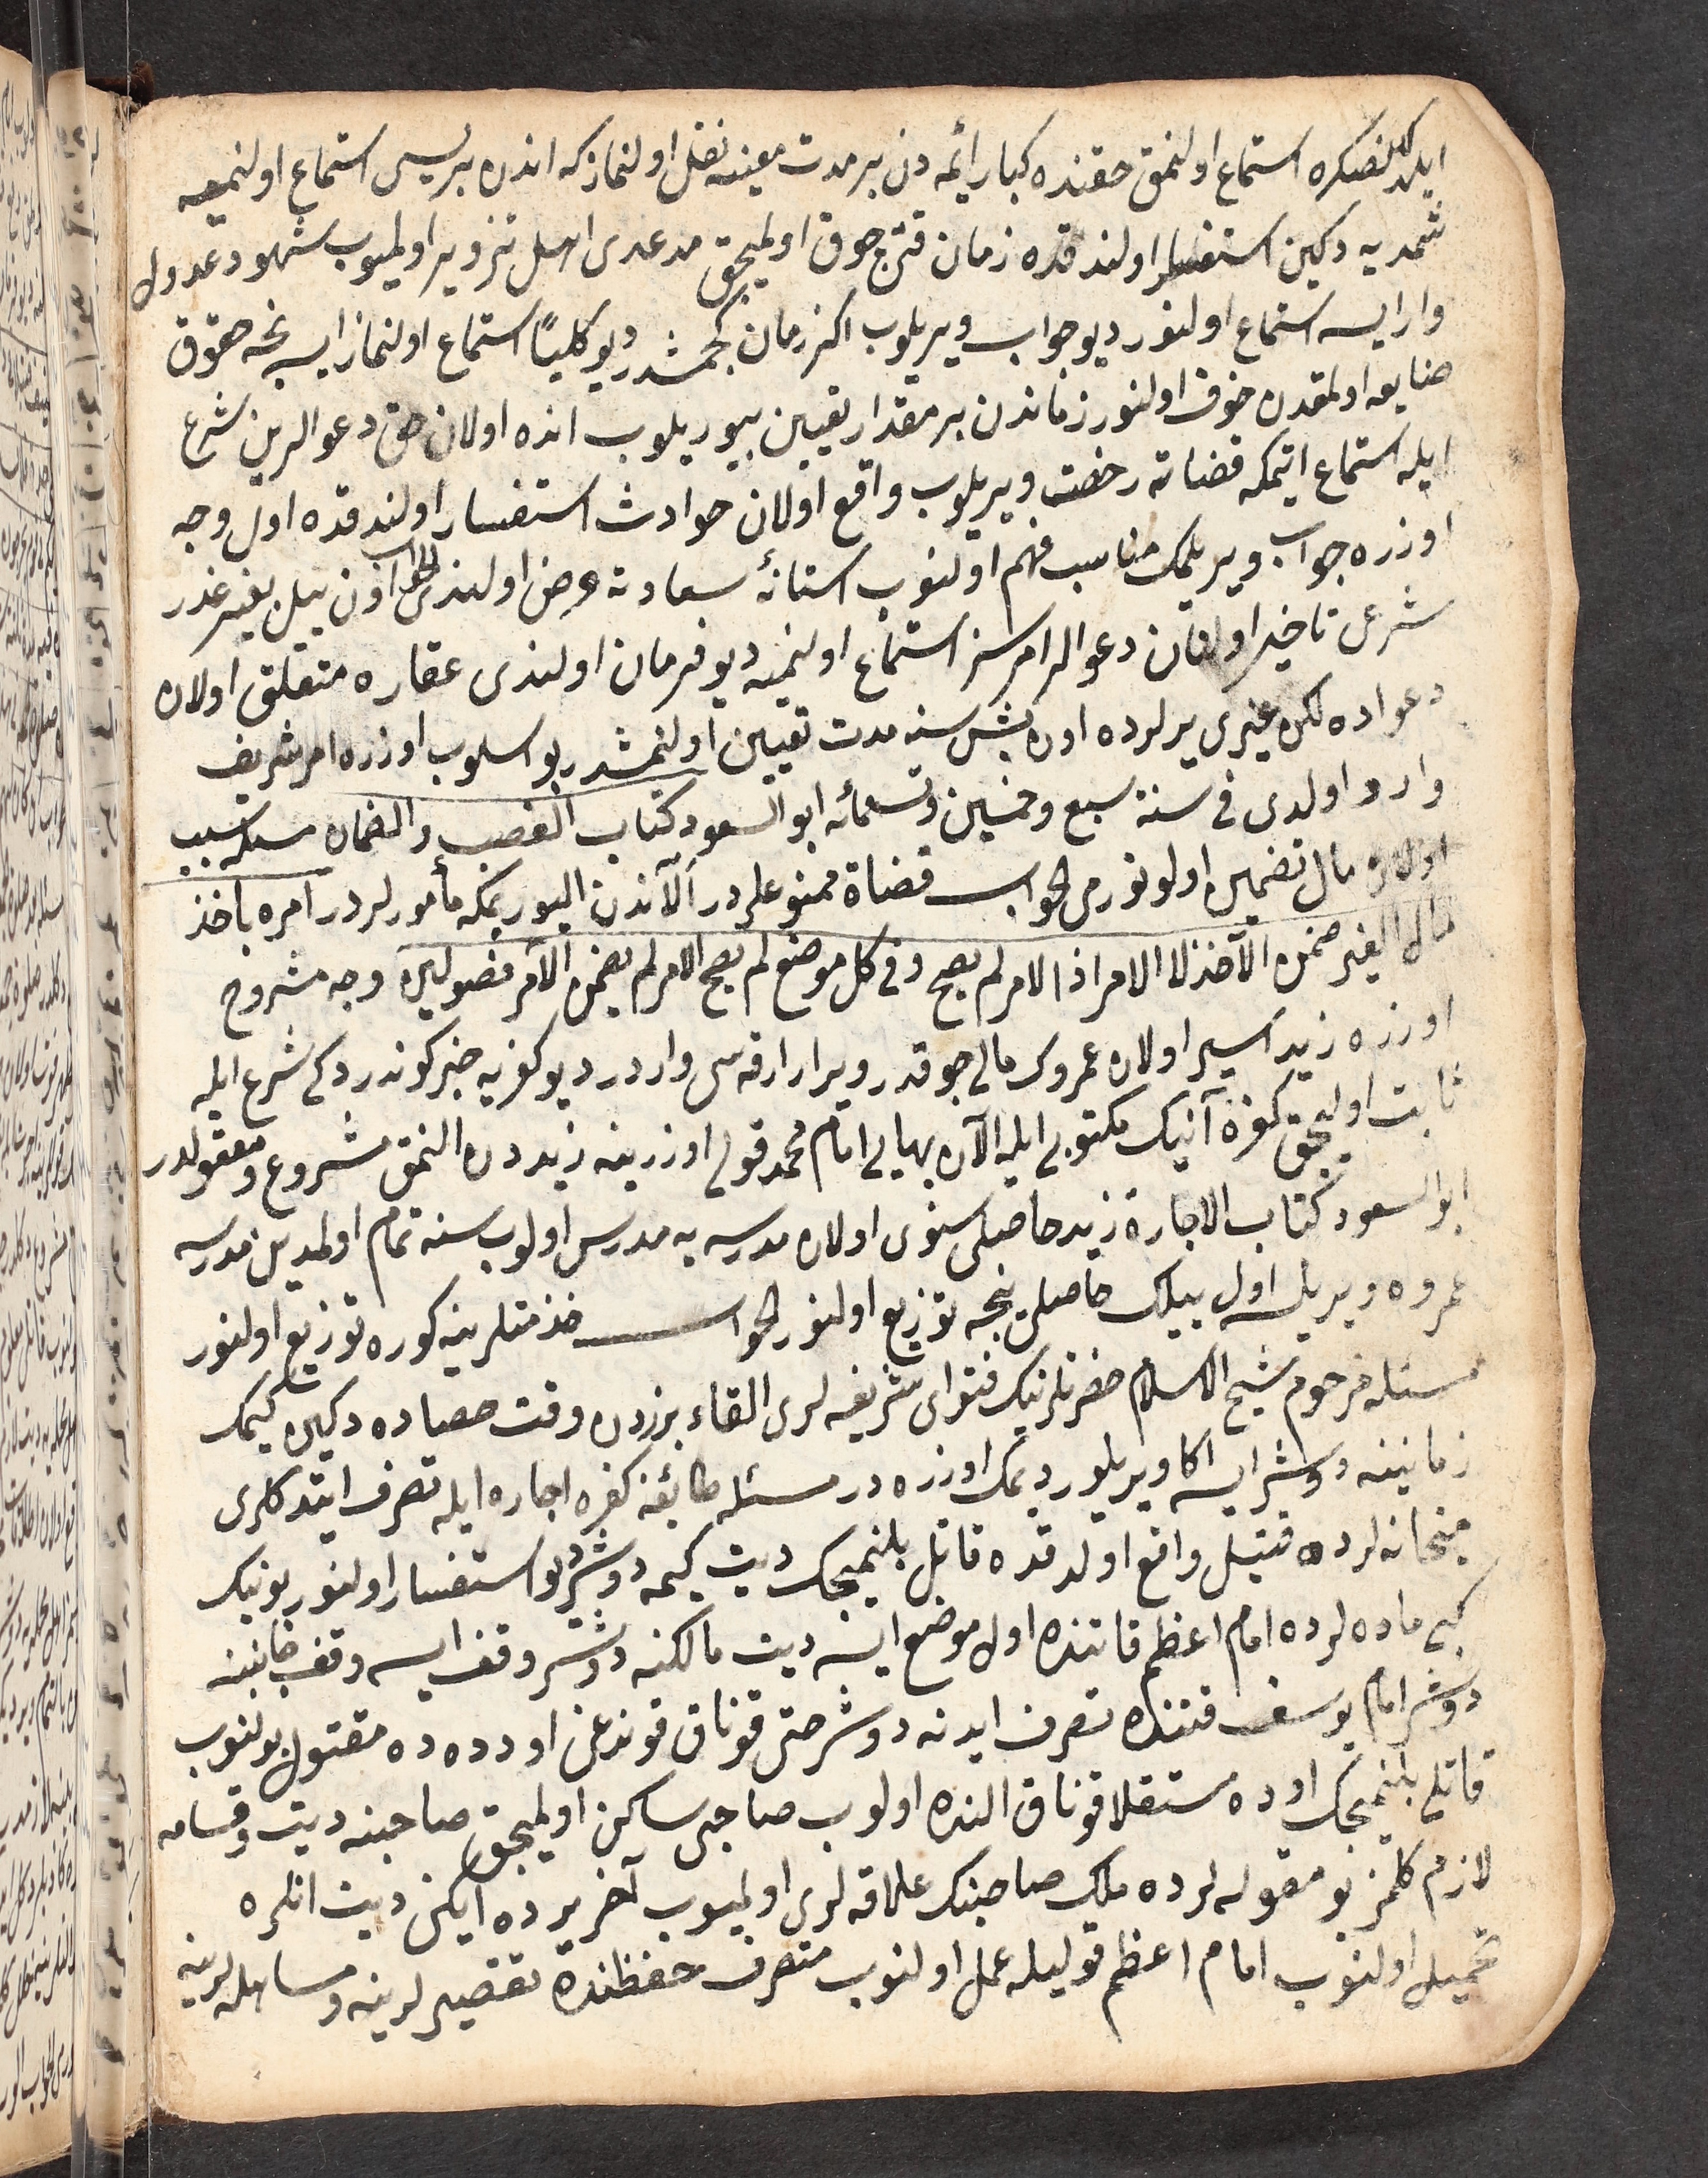 ايلدكدنصكره استماع اولنمق حقنده كبار ائمه دن بر مدت معينه نقل اولنماز كه اندن برليسى استماع اولنميه
شمديه دكين استفسار اولندقده زمان قتى چوق اولميجق مدعى اهل تزوير اولميوب شهود عدول
وار ايسه استماع اولنور ديو جواب ويريلوب اكثر زمان كچمشدر ديو كليًا استماع اولنماز ايسه نچه حقوق
ضايعه اولمقدن خوف اولنور زماندن بر مقدار تعيين بيوريلوب انده اولان حق دعوالرين شرع
ايله استماع ايتمكه قضاته رخصت ويريلوب واقع اولان حوادث استفسار اولندقده اول وجه
اوزره جواب ويريلمك مناسب فهم اولنوب استانۀ سعادته عرض اولندى الجواب اون ييل بغير عذر
شرعى تاخير اولنان دعوالر امرسز استماع اولنميه ديو فرمان اولندى عقاره متعلق اولان
دعواده لكن غيرى يرلرده اون بش سنه مدت تعيين اولنمشدر بو اسلوب اوزره امر شريف
وارد اولدى فى سنة سبع وخمسين وتسعمائه ابو السعود كتاب الغصب والضمان مسئله سبب
اولان مال تضمين اولونور مى الجواب قضاة ممنوعلردر آلآندن اليوريمكه مأمورلردر امره باخذ
مال الغير ضمن الآخذ لا الامر اذ الامر لم يصح وفى كل موضع لم يصح الامر لم يضمن الآمر فصولين وجه مشروح
اوزره زيد اسير اولان عمروك مالى چوقدر ويرار ارقه سى واردر ديو كفره يه خبر كوندردكى شرع ايله
ثابت اوليجق كفره آنيك مكتوبى ايله الآن بهايى امام محمد قولى اوزرينه زيددن النمق مشروع ومعقولدر
ابو السعود كتاب الاجارة زيد حاصلى سنوى اولان مدرسه يه مدرس اولوب سنه تمام اولمدين مدرسه
عمروه ويريلسه اول ييلك حاصلى نيجه توزيع اولنور الجواب خذمتلرينه كوره توزيع اولنور
مسئله مرحوم شيخ الاسلام حضرتلرينك فتواى شريفه لرى القاء بزردن وقت حصاده دكين كيمك
زماننه دوشر ايسه اكا ويريلور ديمك اوزره در مسئله طائفۀ كفره اجاره ايله تصرف ايتدكلرى
ميخانه لرده قتيل واقع اولدقده قاتل بلنميجك ديت كيمه دوشر ديو استفسار اولنور بونيك
كبى ماده لرده امام اعظم قاتنده اول موضع ايسه ديت مالكنه دوشر وقف ايسه وقف جانبنه
دوشر امام يوسف قتنده تصرف ايدنه دوشر حتى قوناق قوندغى اودده ده مقتول بولنوب
قاتلى بلنميجك اوده مستقلا قوناق النده اولوب صاحبى ساكن اولميجق صاحبنه ديت وقسامه
لازم كلمز بو مقوله لرده ملك صاحبنك علاقه لرى اولميوب آخر يرده ايكن ديت انلره
تحميل اولنوب امام اعظم قوليله عمل اولنوب متصرف حفظنده تقصيرلرينه ومساهله لرينه